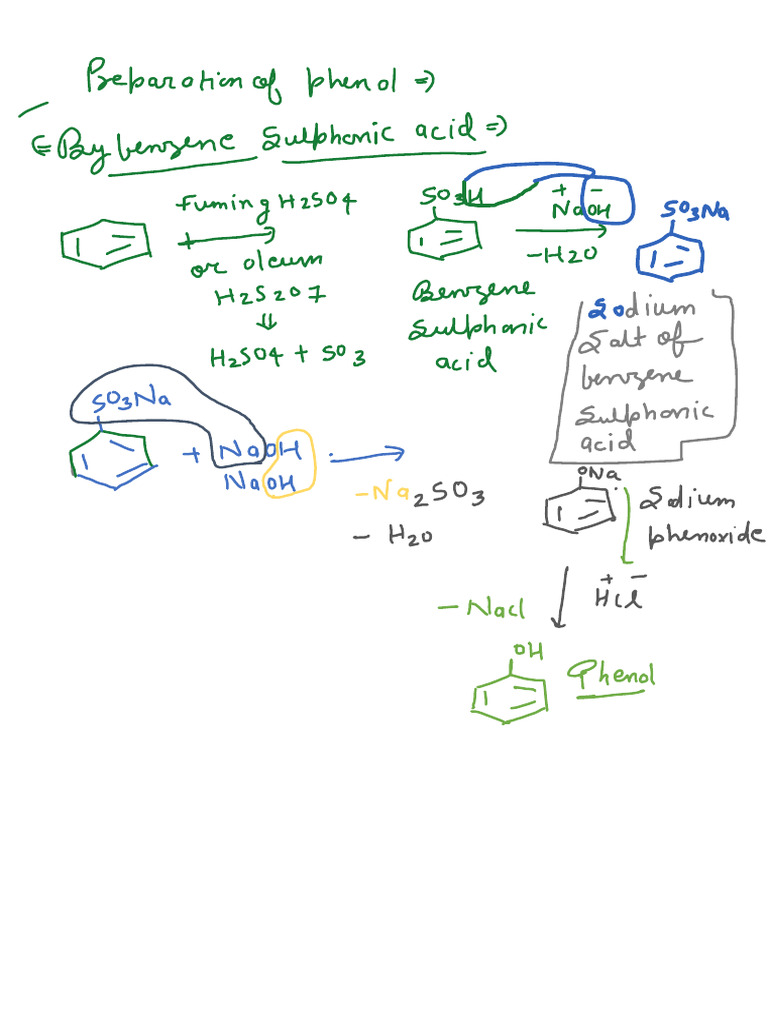 Preparation of phenol ⇒
⇐ By benzene Sulphonic acid ⇒
Fuming H2SO4
or oleum
H2S2O7
⇓
H2SO4 + SO3
SO3H
Benzene
Sulphonic
acid
+ −
NaOH
−H2O
SO3Na
Sodium
Salt of
benzene
Sulphonic
acid
SO3Na
+ NaOH
NaOH
−Na2SO3
− H2O
ONa
Sodium
phenoxide
+ −
HCl
− Nacl
OH
Phenol